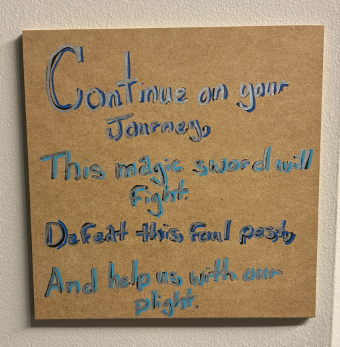 Continue on your
Journey,
This magic sword will
fight.
Defeat this foul pest,
And help us with our
plight.